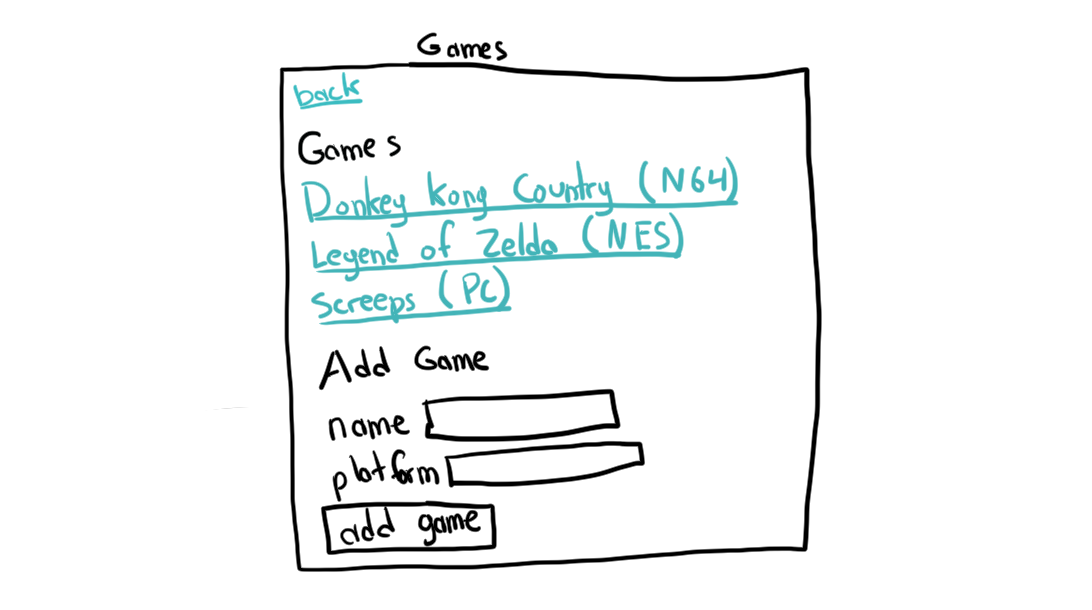 Games
back
Games
Donkey Kong Country (N64)
Legend of Zelda (NES)
Screeps (PC)
Add Game
name
platform
add game